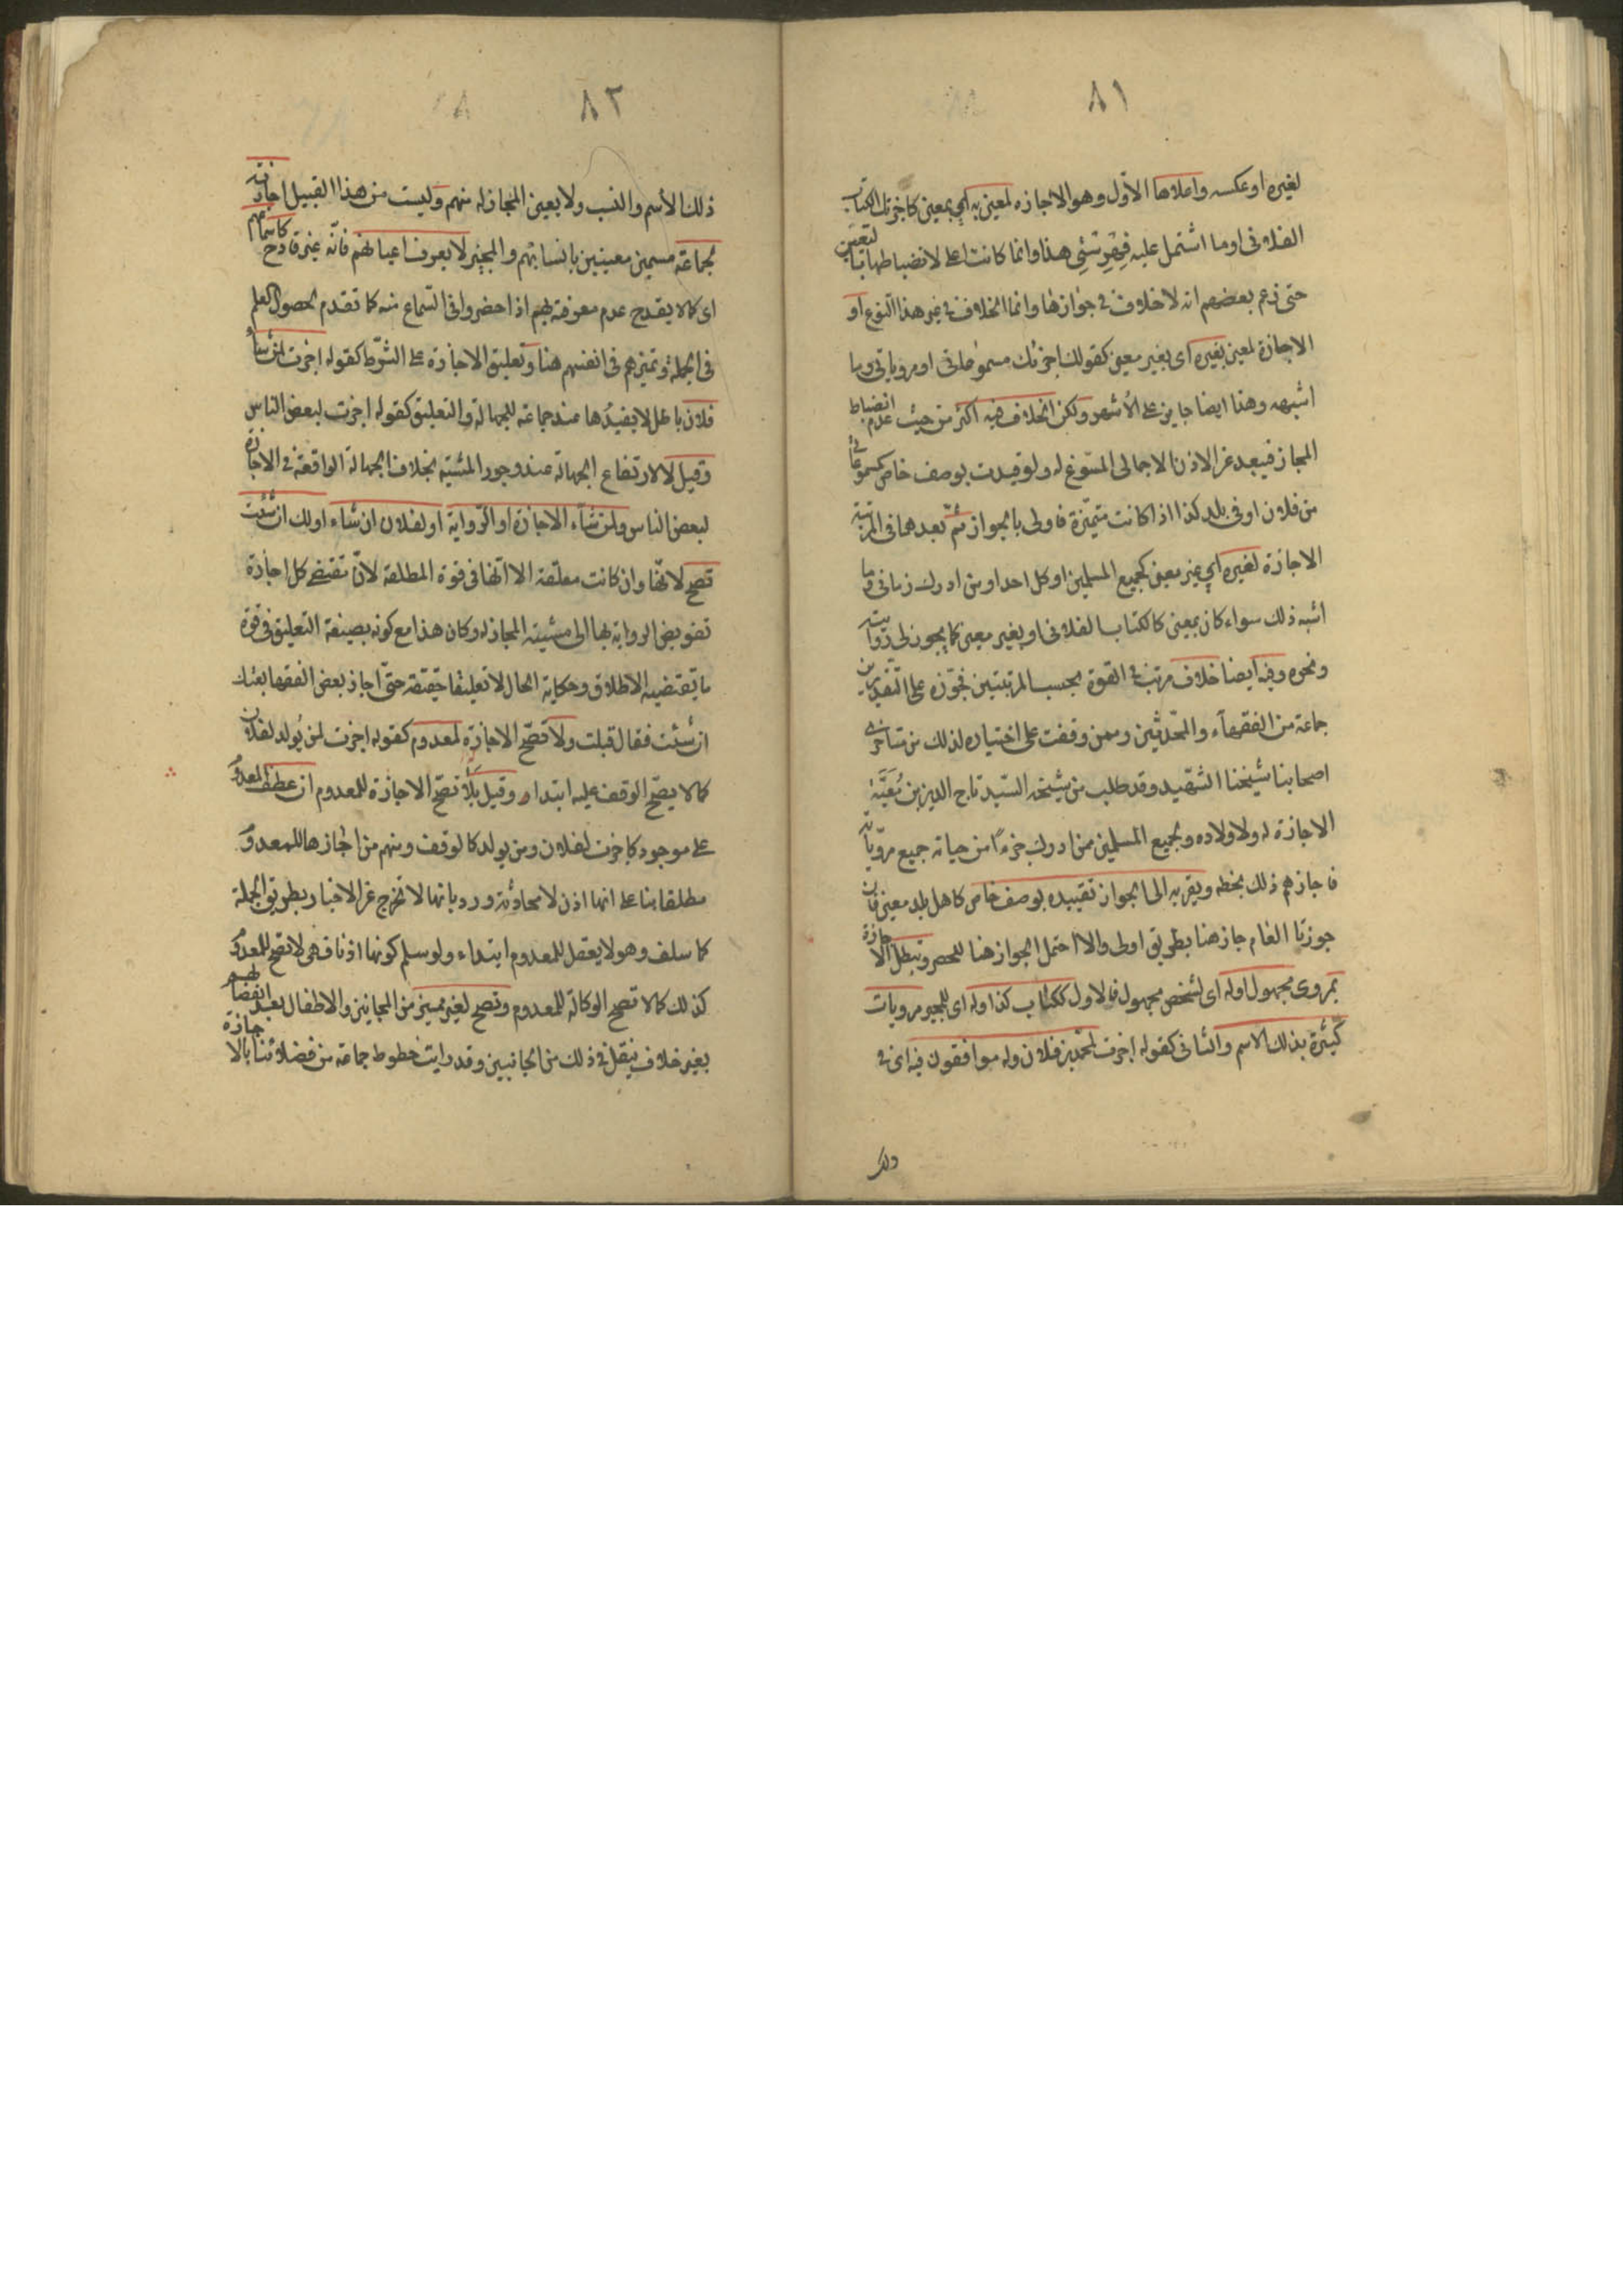 ٨١
لغيره او عكسه واعلاها الاوّل وهو الاجازه لمعين به اي بمعين كاجزتك الكتاب
الفلانى او ما اشتمل عليه فهرستى هذا وانما كانت اعلى لانضباطها بالتعيين
حتى زعم بعضهم انه لا خلاف فى جوازها وانما الخلاف فى غير هذا النّوع او
الاجازة لمعين بغيره اى بغير معين كقولك اجزتك مسموعاتى او مروياتى وما
اشبهه وهذا ايضا جايز على الأشهر ولكن الخلاف فيه اكثر من حيث عدم انضباط
المجاز فيبعد عن الاذن الاجمالى المسّوغ له ولو قيدت بوصف خاص كمسموعاتى
من فلان او فى بلد كذا اذا كانت متميّزة فاولى بالجواز ثمّ بعدهما فى المرتبة
الاجازة لغيره اي غير معين كجميع المسلمين او كل احد او من ادرك زمانى وما
اشبه ذلك سواء كان بمعين كالكتاب الفلانى او بغير معين كما يجوز لى روايته
ونحوه وفيه ايضا خلاف مرتب فى القوة بحسب المرتبتين فجوّزه على التقديرين
جماعة من الفقهآء والمحّدثين وممن وقفت على اختياره لذلك من متاخرى
اصحابنا شيخنا الشّهيد وقد طلب من شيخه السّيد تاج الدين بن مُعَيَّة
الاجازة له ولاولاده ولجميع المسلمين ممن ادرك جزءًا من حياته جميع مروّياته
فاجازهم ذلك بخطه ويقربه الى الجواز تقييده بوصف خاص كاهل بلد معين فان
جوزنا العام جاز هنا بطريق اولى والا احتمل الجواز هنا للحصر وتبطل الاجازة
بمروى مجهول او له اى لشخص مجهول فالاول ككتاب كذا وله اى للمجيز مرويات
كثيرة بذلك الاسم والثانى كقوله اجزت لمحّمد بن فلان وله موافقون فيه اى فى
ذلك
٨٢
ذلك الأسم والنسب ولا يعين المجاز له منهم وليست من هذا القبيل اجازته
لجماعة مسمين معينين بانسابهم والمجيز لا يعرف اعيانهم فانّه غير قادح كاسماعهم
اى كما لا يقدح عدم معرفته بهم اذا حضروا فى السّماع منه كما تقدم لحصول العلم
فى الجملة وتميزهم فى انفسهم هنا وتعليق الاجازة على الشّرط كقوله اجزت لمن شاء
فلان باطل لا يفيدُها عند جماعة للجهالة والتعليق كقوله اجزت لبعض الناس
وقيل لا لارتفاع الجهالة عند وجود المشية بخلاف الجهالة الواقعة فى الاجازة
لبعض الناس ولمن شآء الاجازة او الرّواية او لفلان ان شاء او لك ان شئت
تصح لانّها وان كانت معلّقة الا انّها فى قوة المطلقة لانّ مقتضى كل اجازة
تفويض الرواية بها الى مشيئة المجاز له وكان هذا مع كونه بصيغة التعليق فى قوة
ما يقتضيه الاطلاق وحكاية الحال لا تعليقا حقيقة حتّى اجاز بعض الفقها بعتك
ان شئت فقال قبلت ولا تصّح الاجازة لمعدوم كقوله اجزت لمن يُولد لفلان
كما لا يصّح الوقف عليه ابتداء وقيل بلى تصّح الاجازة للمعدوم ان عطف المعدوم
على موجود كاجزت لفلان ومن يولد كالوقف ومنهم من اجازها للمعدوم
مطلقا بنا على انها اذن لا محادثة ورد بانها لا تخرج عن الاخبار بطريق الجملة
كما سلف وهو لا يعقل للمعدوم ابتداء ولو سلم كونها اذنا فهى لا تصّح للمعدوم
كذلك كما لا تصّح الوكالة للمعدوم وتصح لغير مميز من المجانين والاطفال بعد انفصالهم
بغير خلاف ينقل فى ذلك من الجانبين وقد رايت خطوط جماعة من فضلائنا بالاجازة